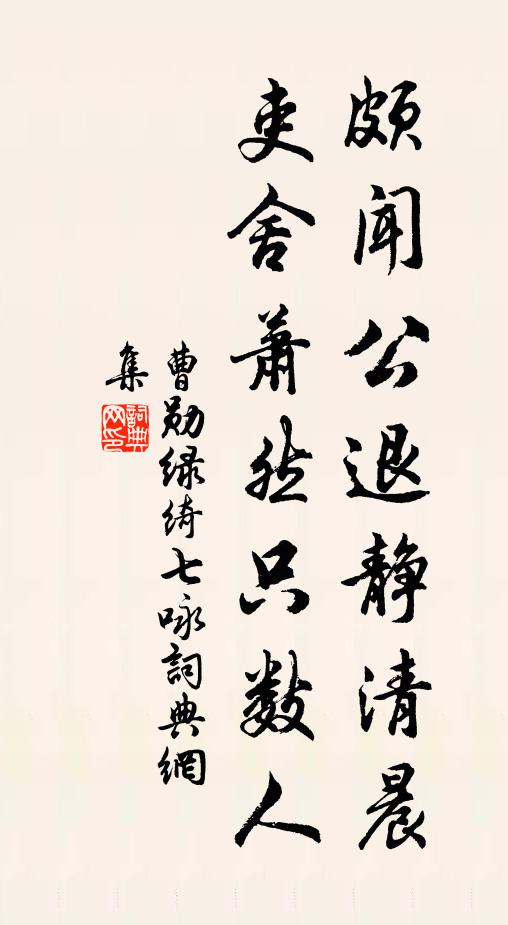 颇闻公退静清晨
吏舍萧然只数人
曹勋绿绮七咏詞典網
集
詞典网印